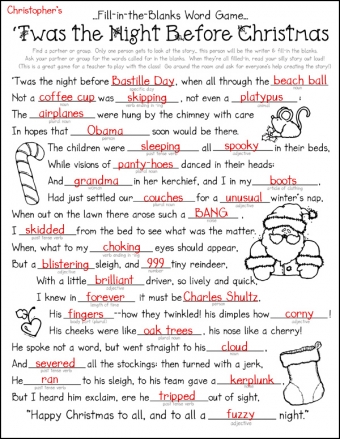 Christopher's
...Fill-in-the-Blanks Word Game...
'Twas the Night Before Christmas
Find a partner or group. Only one person gets to look at the story, this person will be the writer & fill in the blanks.
Ask your partner or group for the words called for in the blanks. When they're all filled in, read your silly story out loud!
(This is a great game for a teacher to play with the class! Go around the room and ask for everyone's help creating the story!)
'Twas the night before Bastille Day, when all through the beach ball
specific day
noun
Not a coffee cup was skipping, not even a platypus;
noun
verb ending in "ing"
animal
The airplanes were hung by the chimney with care
plural noun
In hopes that Obama soon would be there.
person
The children were sleeping all spooky in their beds,
past tense verb
adjective
While visions of panty-hoes danced in their heads:
plural noun
And grandma in her kerchief, and I in my boots,
woman
article of clothing
Had just settled our couches for a unusual winter's nap,
plural noun
adjective
When out on the lawn there arose such a BANG,
noun
I skidded from the bed to see what was the matter.
past tense verb
When, what to my choking eyes should appear,
verb ending in "ing"
But a blistering sleigh, and 999 tiny reindeer,
adjective
number
With a little brilliant driver, so lively and quick,
adjective
I knew in forever it must be Charles Shultz.
length of time
person
His fingers --how they twinkled! his dimples how corny!
body part (plural)
adjective
His cheeks were like oak trees, his nose like a cherry!
plural noun
He spoke not a word, but went straight to his cloud,
noun
And severed all the stockings; then turned with a jerk,
past tense verb
He ran to his sleigh, to his team gave a kerplunk,
past tense verb
noise
But I heard him exclaim, ere he tripped out of sight,
past tense verb
"Happy Christmas to all, and to all a fuzzy night."
adjective